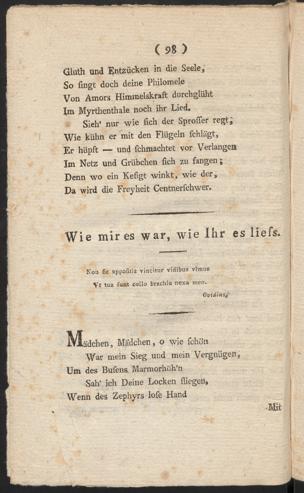 ( 98 )
Gluth und Entzücken in die Seele,
So singt doch deine Philomele
Von Amors Himmelskraft durchglüht
Im Myrthenthale noch ihr Lied.
Sieh' nur wie sich der Sprosser regt;
Wie kühn er mit den Flügeln schlägt,
Er hüpft — und schmachtet vor Verlangen
Im Netz und Grübchen sich zu fangen;
Denn wo ein Kefigt winkt, wie der,
Da wird die Freyheit Centnerschwer.
Wie mir es war, wie Ihr es liess.
Non sic appositis vincitur vitibus vlmus
Vt tua sunt collo brachia nexa meo.
Ovidius
Mädchen, Mädchen, o wie schön
War mein Sieg und mein Vergnügen,
Um des Busens Marmorhöh'n
Sah' ich Deine Locken fliegen,
Wenn des Zephyrs lose Hand
Mit